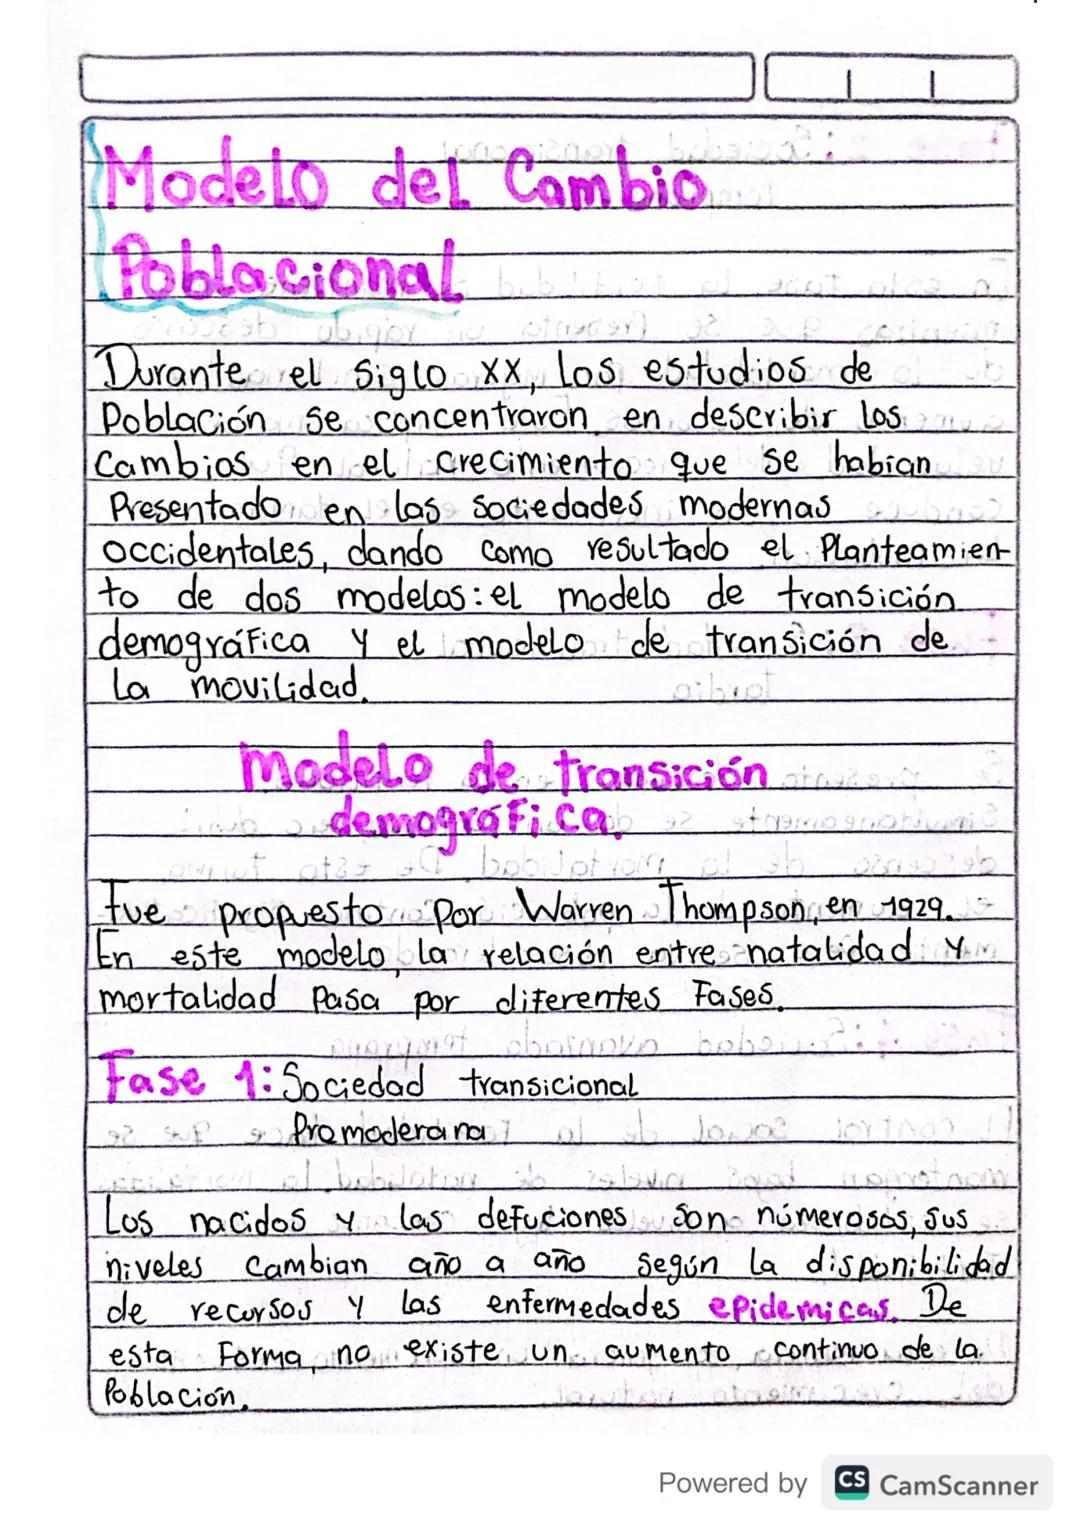 Modelo del Cambio
Poblacional
Durante el siglo XX, los estudios de
Población se concentraron en describir los
Cambios en el crecimiento que se habian
Presentado en las sociedades modernas
occidentales, dando como resultado el Planteamien-
to de dos modelos: el modelo de transición
demográfica y el modelo de transición de
la movilidad.
Modelo de transición
demográfica.
Fue propuesto por Warren Thompson, en 1929.
En este modelo, la relación entre natalidad y
mortalidad pasa por diferentes Fases.
Fase 1: Sociedad transicional
Premoderana
Los nacidos y las defuciones son númerosos, sus
niveles cambian año a año según la disponibilidad
de recursos y las enfermedades epidemicas. De
esta Forma, no existe un aumento continuo de la
Población.
Powered by CS CamScanner